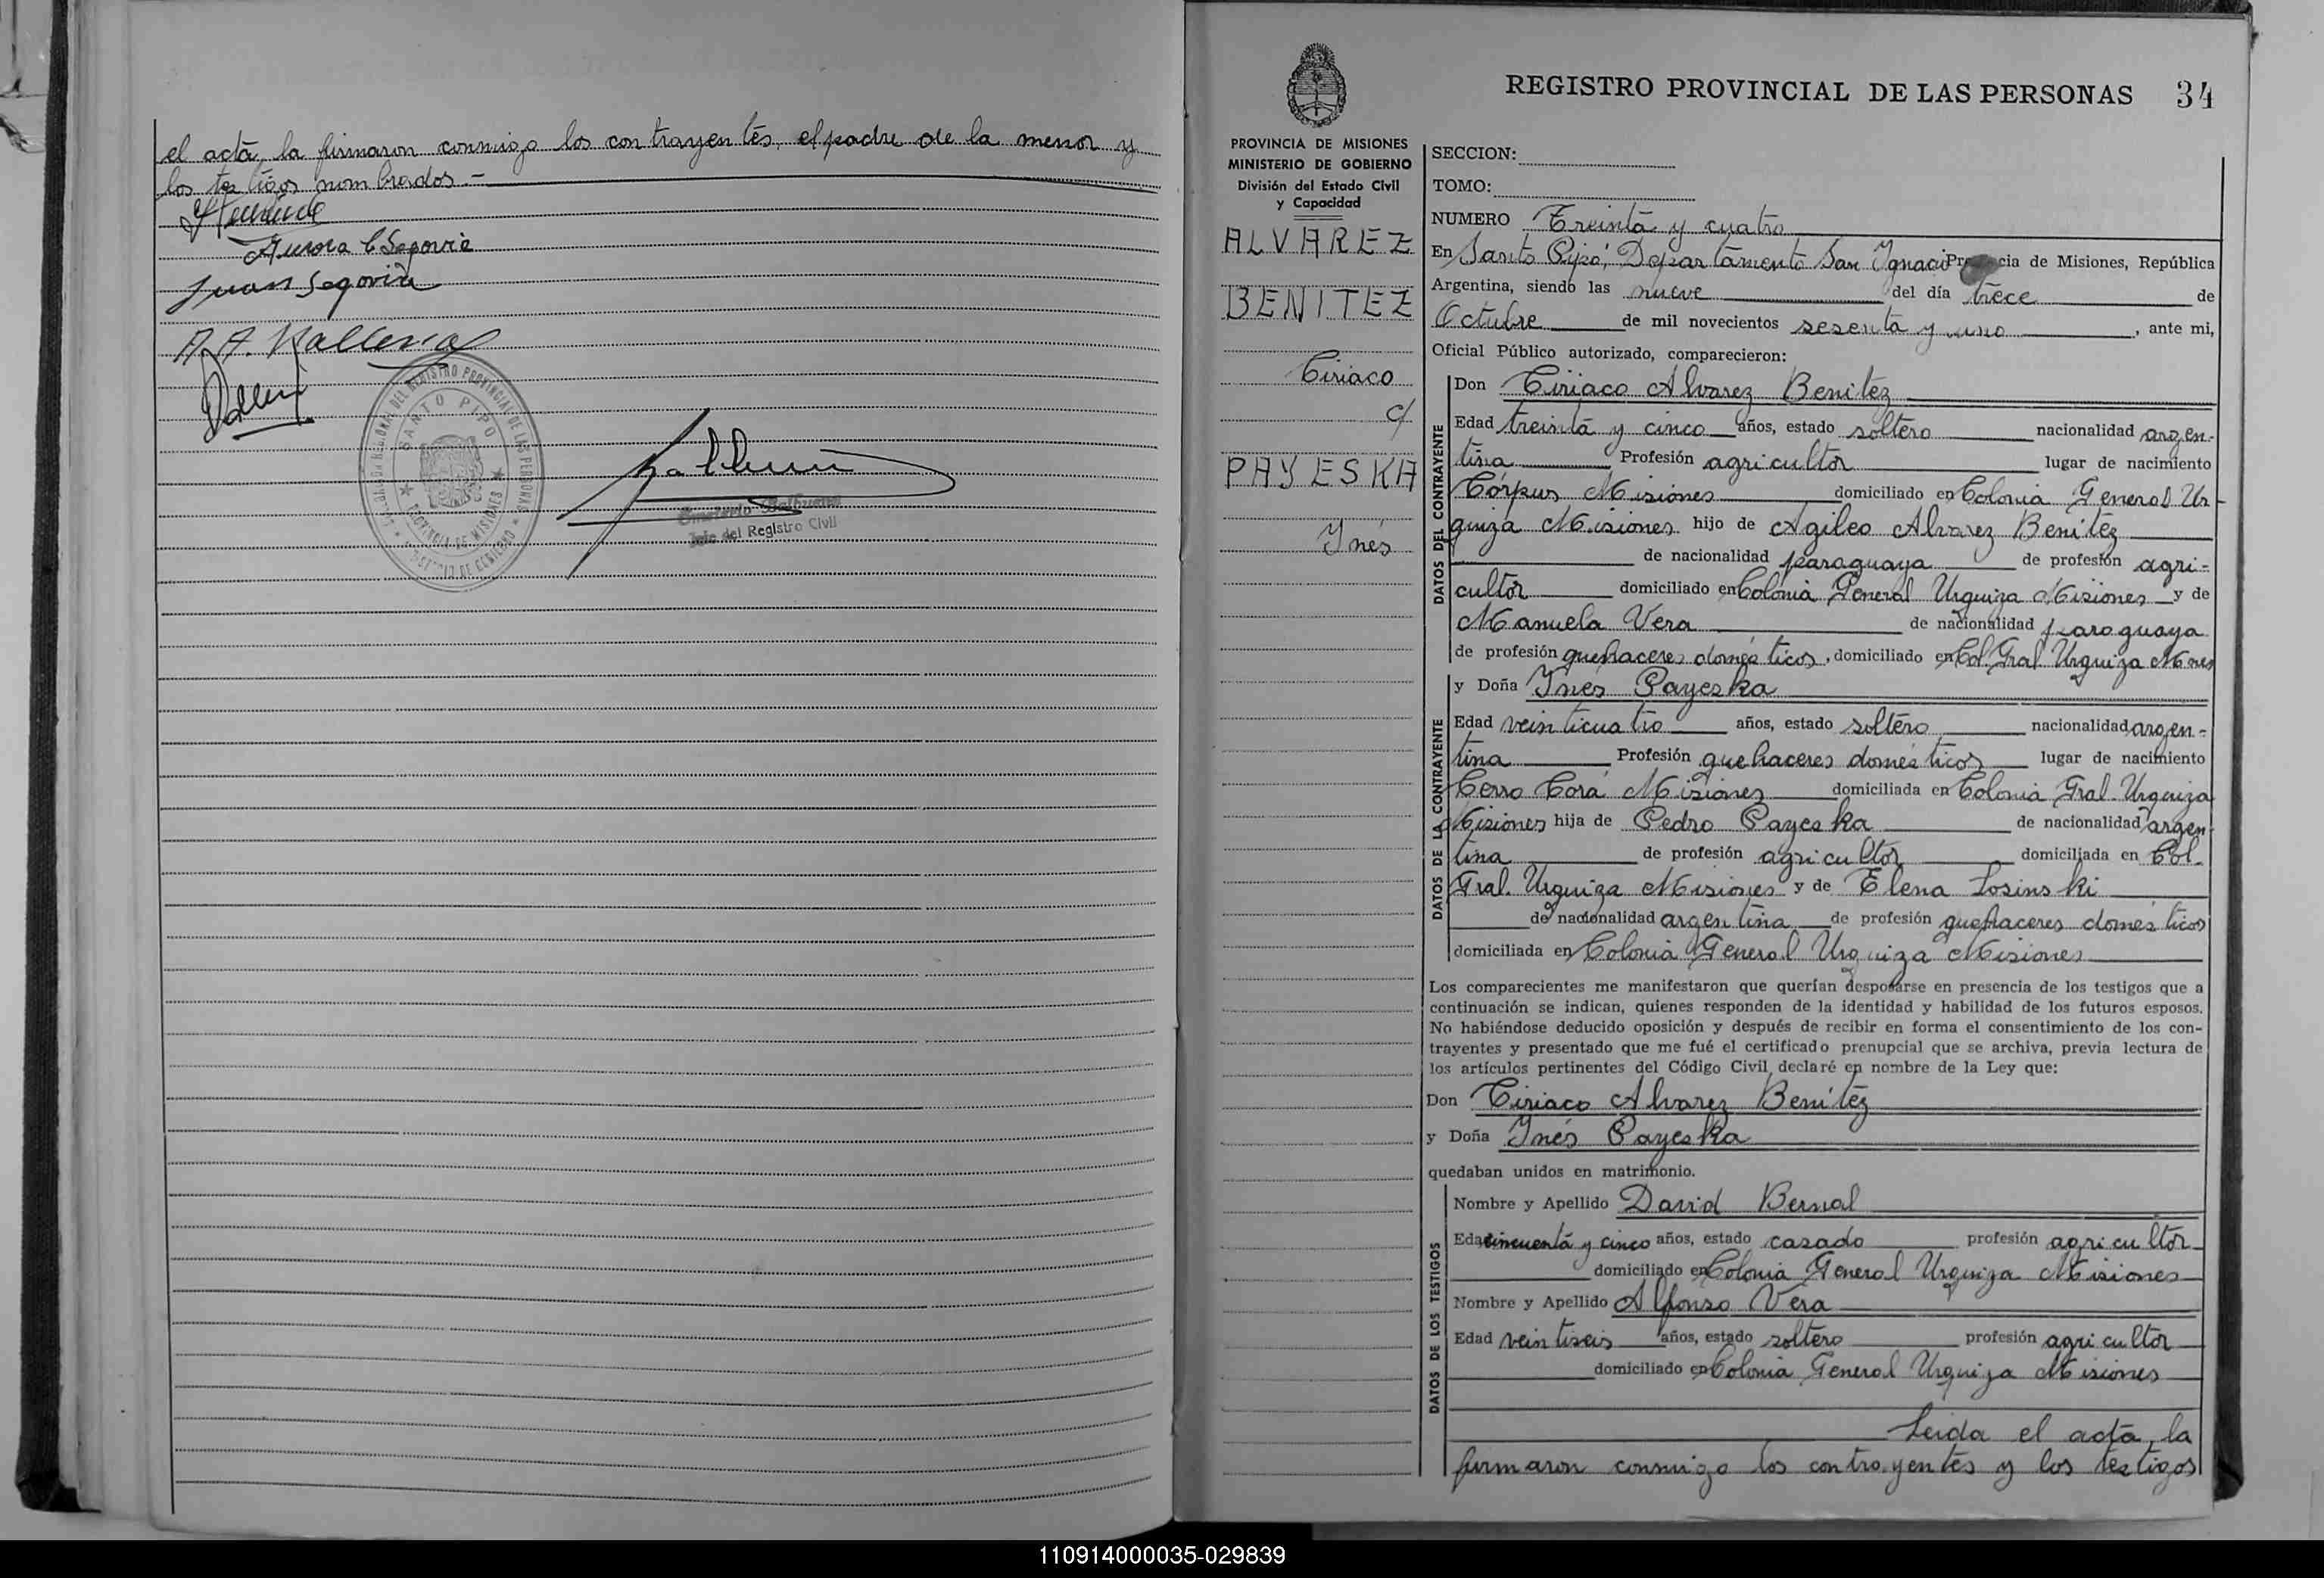 el acta, la firmaron conmigo los contrayentes, el padre de la menor y
los testigos nombrados.-
Aurora E Segovia
Juan Segovia
SANTO PIPO
PROVINCIA DE MISIONES
Jefe del Registro Civil
REGISTRO PROVINCIAL DE LAS PERSONAS 34
PROVINCIA DE MISIONES
MINISTERIO DE GOBIERNO
División del Estado Civil
y Capacidad
ALVAREZ
BENITEZ
Ciriaco
c/
PAYESKA
Ynés
SECCION:
TOMO:
NUMERO Treinta y cuatro
En Santo Pipó, Departamento San Ygnacio Provincia de Misiones, República
Argentina, siendo las nueve del día trece de
Octubre de mil novecientos sesenta y uno, ante mi,
Oficial Público autorizado, comparecieron:
DATOS DEL CONTRAYENTE
Don Ciriaco Alvarez Benitez
Edad treinta y cinco años, estado soltero nacionalidad argen-
tina Profesión agricultor lugar de nacimiento
Córpus Misiones domiciliado en Colonia General Ur-
quiza Misiones hijo de Agileo Alvarez Benitez
de nacionalidad paraguaya de profesión agri-
cultor domiciliado en Colonia General Urquiza Misiones y de
Manuela Vera de nacionalidad paraguaya
de profesión quehaceres domésticos, domiciliado en Col. Gral. Urquiza Mnes
DATOS DE LA CONTRAYENTE
y Doña Ynés Payeska
Edad veinticuatro años, estado soltero nacionalidad argen-
tina Profesión quehaceres domésticos lugar de nacimiento
Cerro Corá Misiones domiciliada en Colonia Gral. Urquiza
Misiones hija de Pedro Payeska de nacionalidad argen-
tina de profesión agricultor domiciliada en Col.
Gral. Urquiza Misiones y de Elena Losinski
de nacionalidad argentina de profesión quehaceres domésticos
domiciliada en Colonia General Urquiza Misiones
Los comparecientes me manifestaron que querían desposarse en presencia de los testigos que a
continuación se indican, quienes responden de la identidad y habilidad de los futuros esposos.
No habiéndose deducido oposición y después de recibir en forma el consentimiento de los con-
trayentes y presentado que me fué el certificado prenupcial que se archiva, previa lectura de
los artículos pertinentes del Código Civil, declaré en nombre de la Ley que:
Don Ciriaco Alvarez Benitez
y Doña Ynés Payeska
quedaban unidos en matrimonio.
DATOS DE LOS TESTIGOS
Nombre y Apellido David Bernal
Edad cincuenta y cinco años, estado casado profesión agricultor
domiciliado en Colonia General Urquiza Misiones
Nombre y Apellido Alfonso Vera
Edad veintiseis años, estado soltero profesión agricultor
domiciliado en Colonia General Urquiza Misiones
Leida el acta, la
firmaron conmigo los contrayentes y los testigos
110914000035-029839